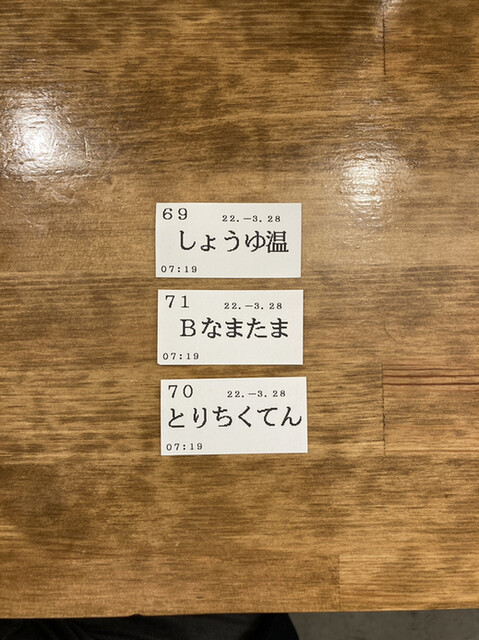 69 22.-3.28
しょうゆ温
07:19
71 22.-3.28
Bなまたま
07:19
70 22.-3.28
とりちくてん
07:19